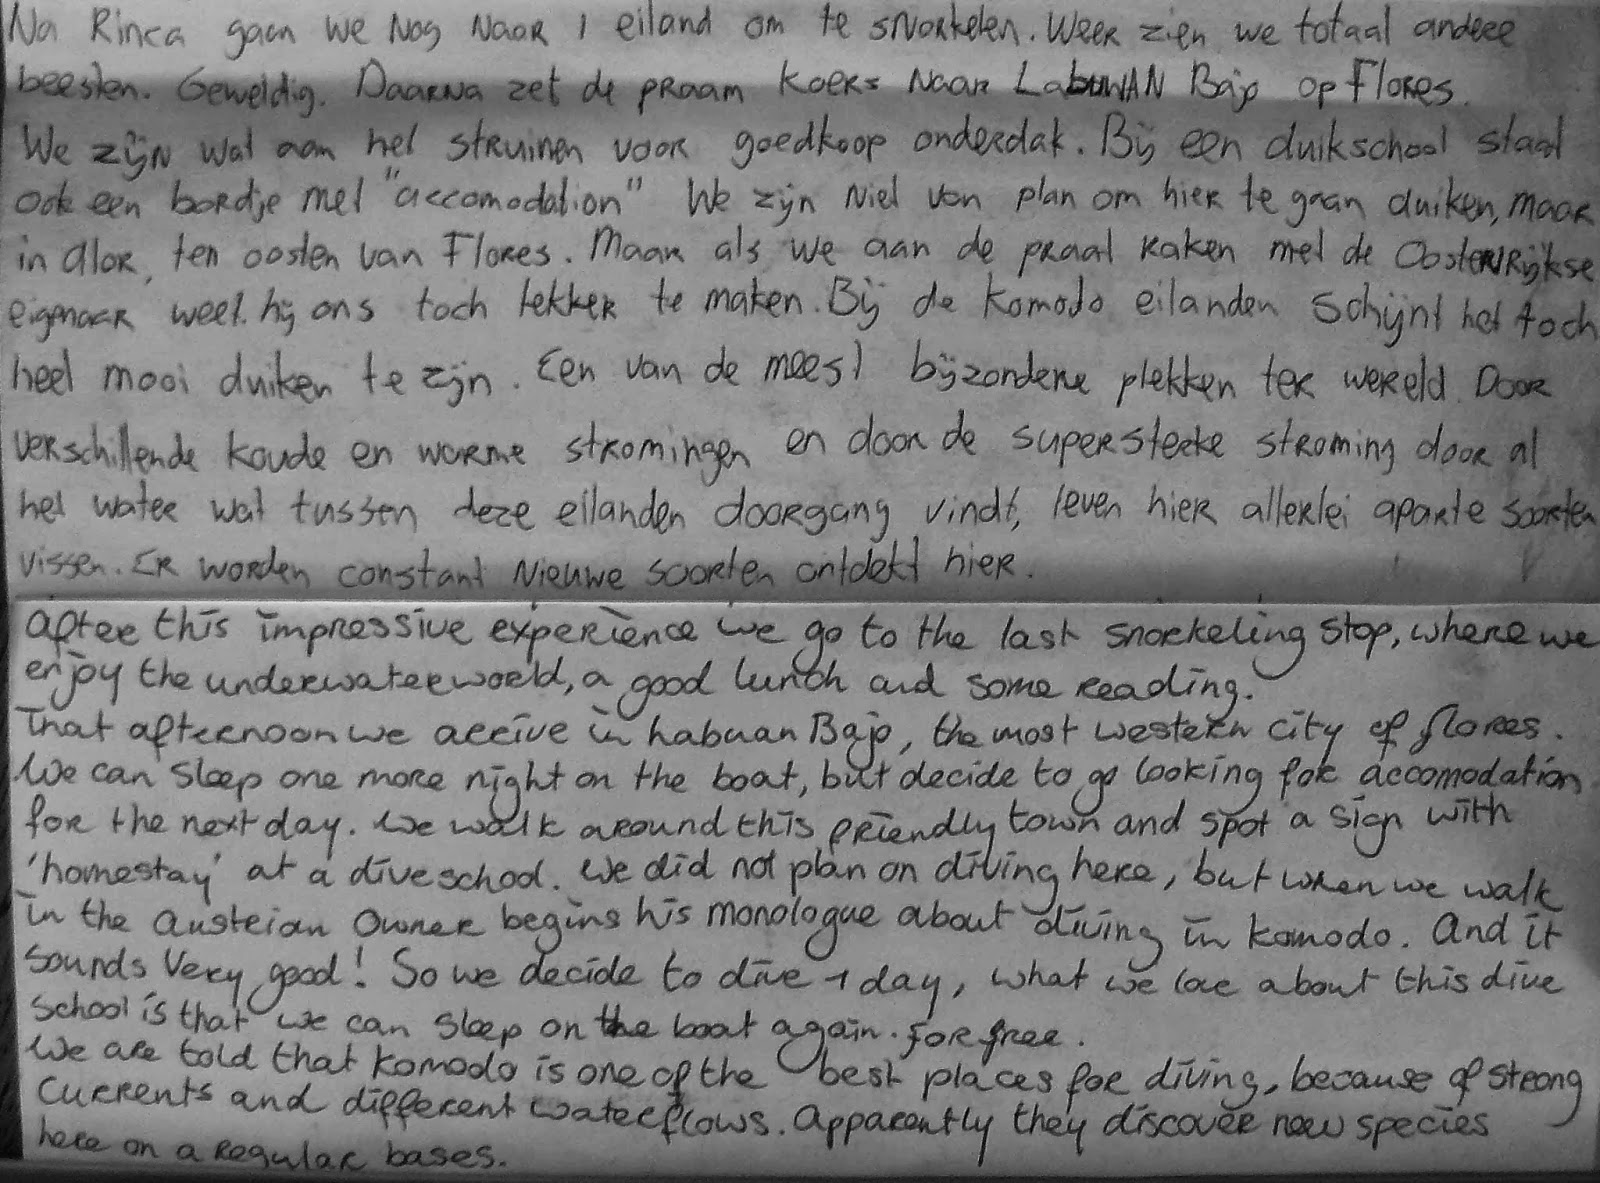 Na Rinca gaan we nog naar 1 eiland om te snorkelen. Weer zien we totaal andere
beesten. Geweldig. Daarna zet de praam koers naar Labuwan Bajo op Flores.
We zijn wat aan het struinen voor goedkoop onderdak. Bij een duikschool staat
ook een bordje met "accomodation" We zijn niet van plan om hier te gaan duiken, maar
in Alor, ten oosten van Flores. Maar als we aan de praat raken met de Oostenrijkse
eigenaar weet hij ons toch lekker te maken. Bij de Komodo eilanden schijnt het toch
heel mooi duiken te zijn. Een van de meest bijzondere plekken ter wereld. Door
verschillende koude en warme stromingen en door de supersterke stroming door al
het water wat tussen deze eilanden doorgang vindt, leven hier allerlei aparte soorten
vissen. Er worden constant nieuwe soorten ontdekt hier.
After this impressive experience we go to the last snorkeling stop, where we
enjoy the underwaterworld, a good lunch and some reading.
That afternoon we arrive in Labuan Bajo, the most western city of Flores.
We can sleep one more night on the boat, but decide to go looking for accomodation
for the next day. We walk around this friendly town and spot a sign with
'homestay' at a diveschool. We did not plan on diving here, but when we walk
in the Austrian owner begins his monologue about diving in Komodo. And it
sounds very good! So we decide to dive 1 day, what we love about this dive
school is that we can sleep on the boat again. For free.
We are told that Komodo is one of the best places for diving, because of strong
currents and different waterflows. Apparently they discover new species
here on a regular bases.